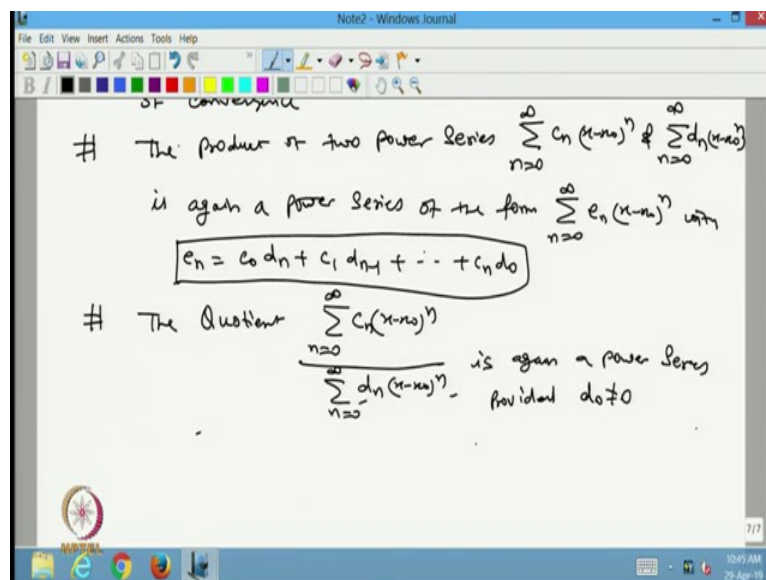 Note2 - Windows Journal
File Edit View Insert Actions Tools Help
B I
of convergence
# The product of two power Series \sum_{n=0}^{\infty} c_n (x-x_0)^n & \sum_{n=0}^{\infty} d_n (x-x_0)^n
is again a power Series of the form \sum_{n=0}^{\infty} e_n (x-x_0)^n with
e_n = c_0 d_n + c_1 d_{n-1} + \cdots + c_n d_0
# The Quotient \frac{\sum_{n=0}^{\infty} c_n (x-x_0)^n}{\sum_{n=0}^{\infty} d_n (x-x_0)^n} is again a power Series
Provided d_0 ≠ 0
7/7
NPTEL
10:45 AM
29-Apr-19